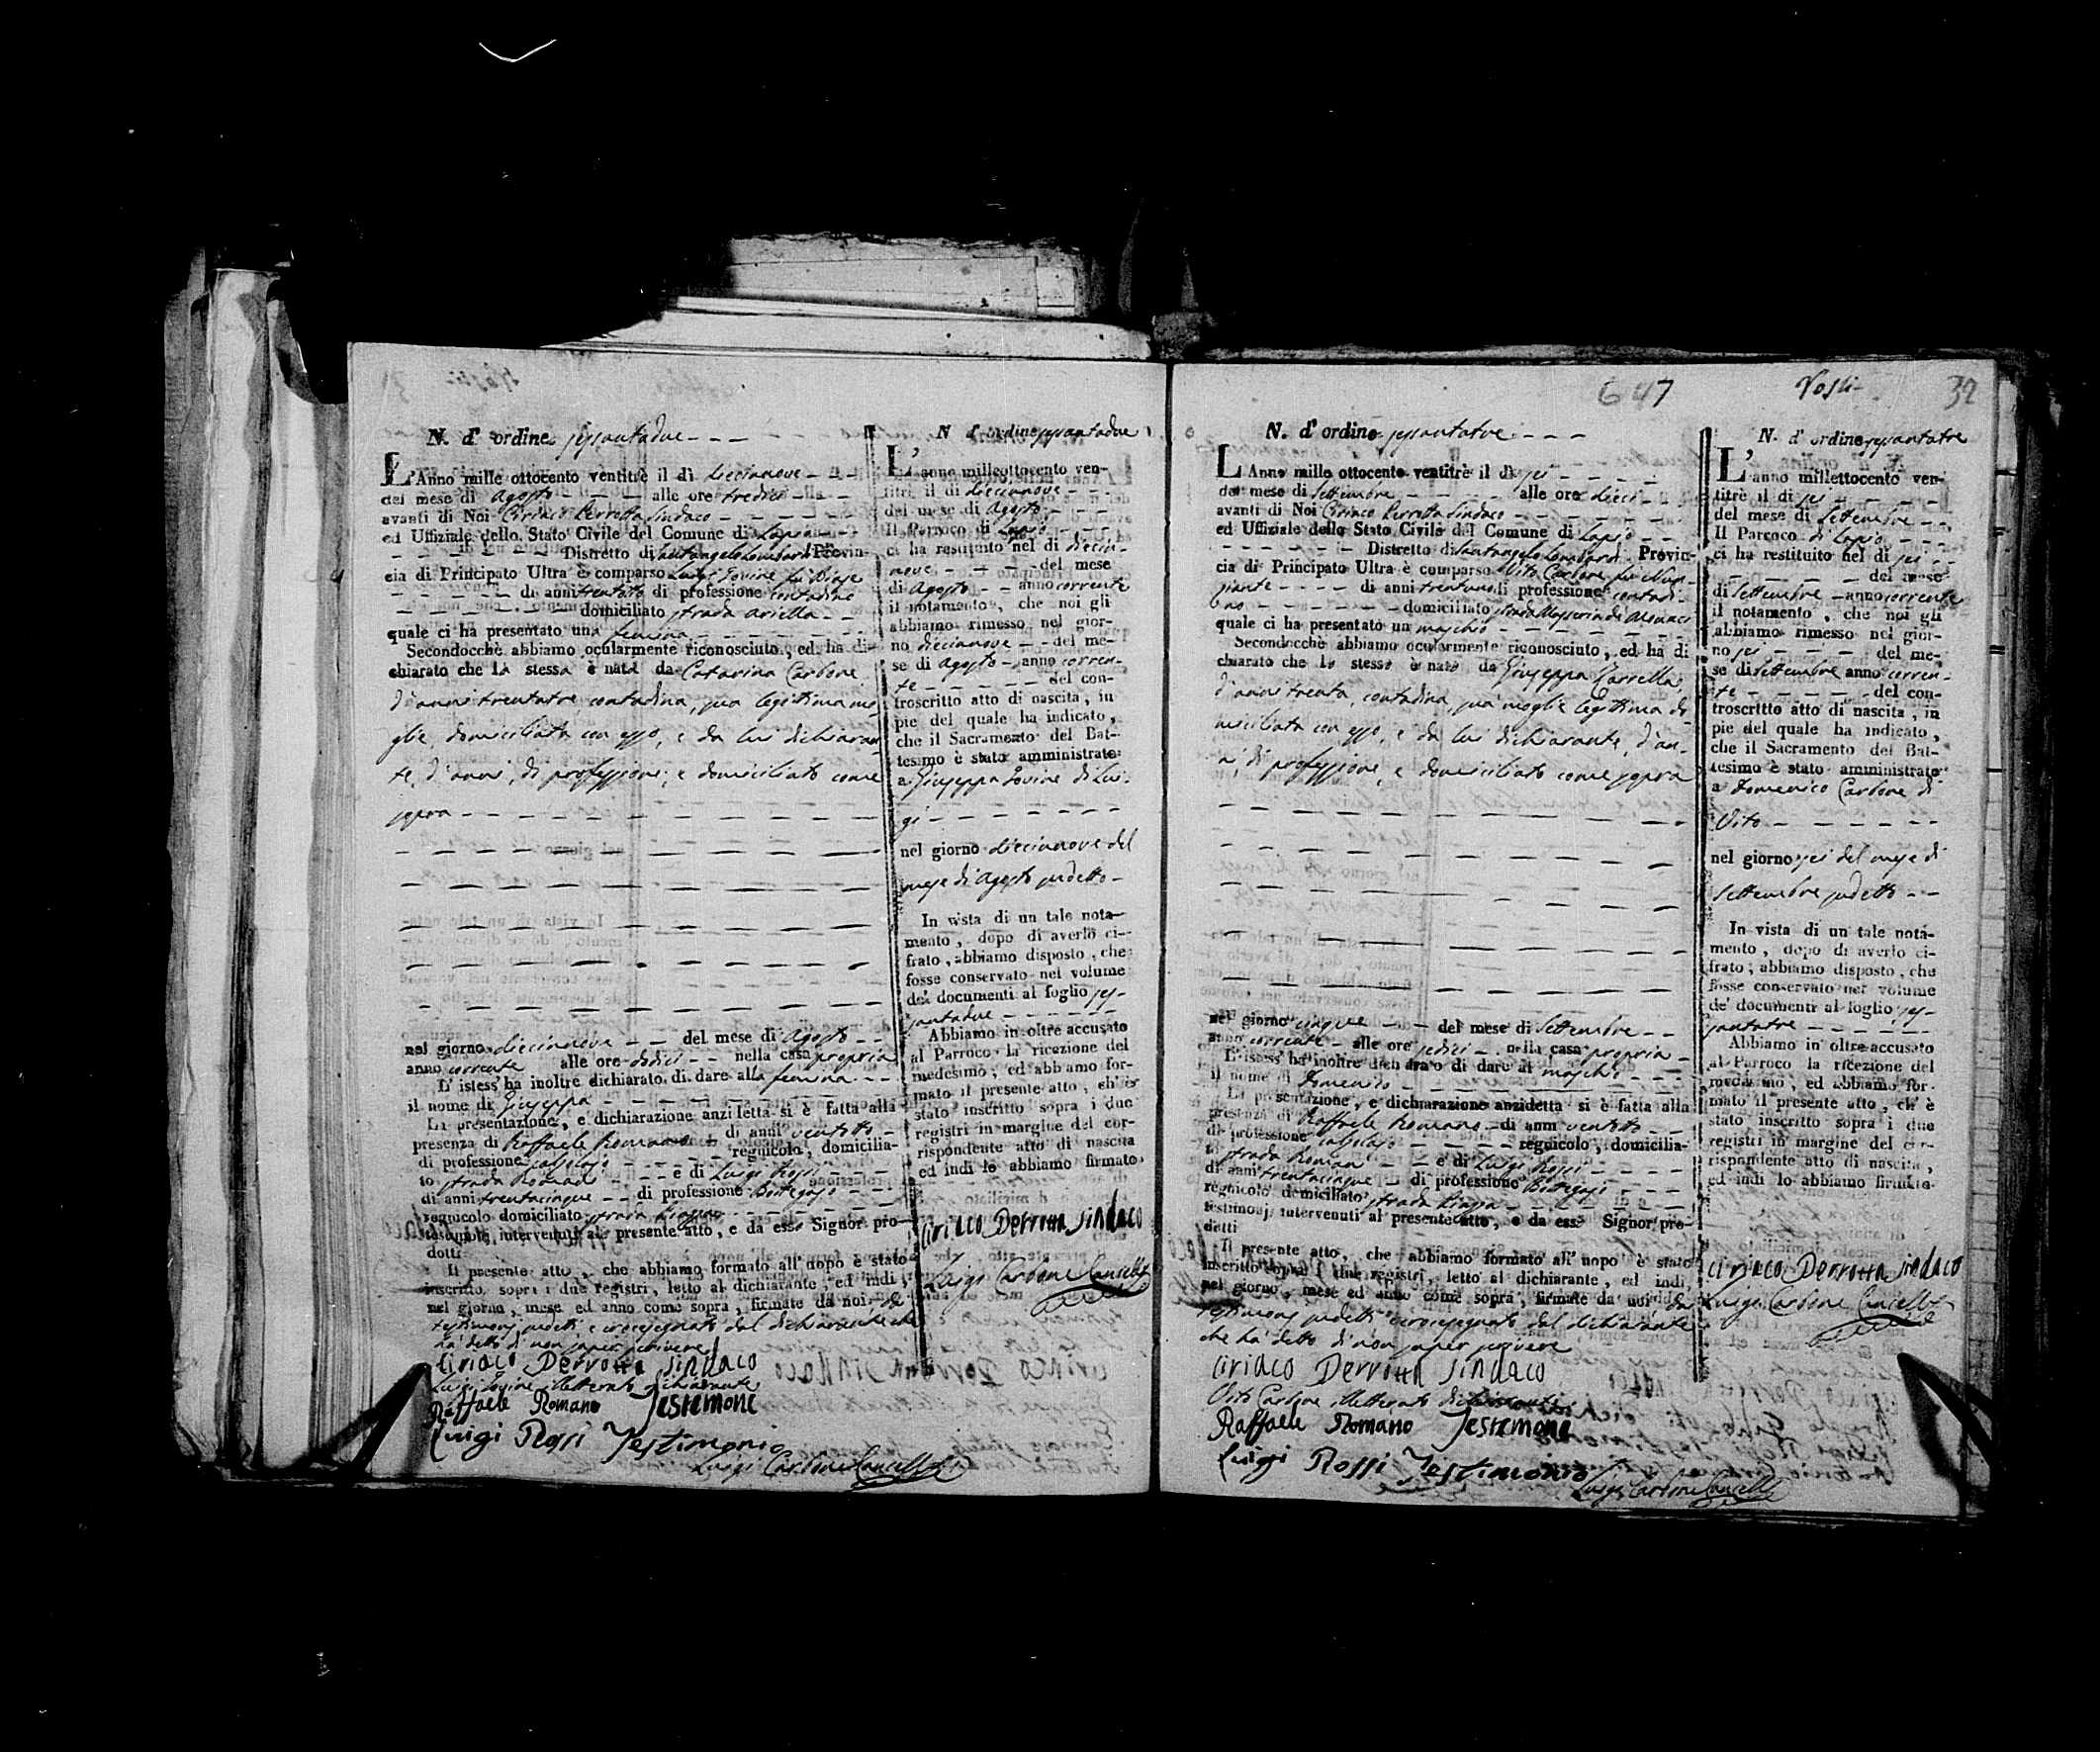 N. d' ordine sessantadue
L'Anno mille ottocento ventitrè il dì diecinove
del mese di Agosto alle ore tredici
avanti di Noi Ciriaco Perrotta Sindaco
ed Uffiziale dello Stato Civile del Comune di Lapio
Distretto di Santangelo Lombardi Provin-
cia di Principato Ultra è comparso Luigi Iovine fu Biase
di anni trentotto di professione contadino
domiciliato strada Ariella
quale ci ha presentato una femina
Secondocchè abbiamo ocularmente riconosciuto, ed ha di-
chiarato che la stessa è nata da Catarina Carbone
d'anni trentatre contadina, sua legittima mo-
glie, domiciliata con esso, e da lui dichiaran
te, d'anni, di professione, e domiciliato come
sopra
nel giorno diecinove del mese di Agosto
anno corrente alle ore dodici nella casa propria
L' istess' ha inoltre dichiarato di dare alla femina
il nome di Giuseppa
La presentazione, e dichiarazione anzidetta si è fatta alla
presenza di Raffaele Romano di anni ventotto
di professione calzolajo regnicolo, domicilia-
to strada Romano e di Luigi Rossi
di anni trentacinque di professione Bottegajo
regnicolo domiciliato strada Piazza
testimonj intervenuti al presente atto, e da esso Signor pro-
dotti
Il presente atto, che abbiamo formato all' uopo è stato
inscritto sopra i due registri, letto al dichiarante, ed indi,
nel giorno, mese ed anno come sopra, firmato da noi, da
testimonj sudetti e crocesegnato dal dichiarante che
ha detto di non saper scrivere
Ciriaco Perrotta Sindaco
Luigi Iovine illetterato dichiarante
Raffaele Romano Testemone
Luigi Rossi Testimonio
Luigi Carbone Cancell.
N. d' ordine sessantadue
L'anno milleottocento ven-
titrè il di diecinove
del mese di Agosto
Il Parroco di Lapio
ci ha restituito nel di diecin-
nove del mese
di Agosto anno corrente
il notamento, che noi gli
abbiamo rimesso nel gior-
no diecinove del me-
se di Agosto anno corren-
te del con-
troscritto atto di nascita, in
pie del quale ha indicato,
che il Sacramento del Bat-
tesimo è stato amministrato
a Giuseppa Iovine di Lui-
gi
nel giorno diecinnove del
mese di Agosto sudetto
In vista di un tale nota-
mento, dopo di averlo ci-
frato, abbiamo disposto, che
fosse conservato nel volume
de' documenti al foglio ses-
santadue
Abbiamo in oltre accusato
al Parroco la ricezione del
medesimo, ed abbiamo for-
mato il presente atto, ch' è
stato inscritto sopra i due
registri in margine del cor-
rispondente atto di nascita
ed indi lo abbiamo firmato.
Ciriaco Perrotta Sindaco
Luigi Carbone Cancell.
647
32
N. d' ordine sessantatre
L'Anno mille ottocento ventitrè il dì sei
del mese di Settembre alle ore dieci
avanti di Noi Ciriaco Perrotta Sindaco
ed Uffiziale dello Stato Civile del Comune di Lapio
Distretto di Santangelo Lombardi Provin-
cia di Principato Ultra è comparso Vito Carbone fu Nun-
ziante di anni trentuno di professione contadi-
no domiciliato strada Masseria di
quale ci ha presentato un maschio
Secondocchè abbiamo ocularmente riconosciuto, ed ha di
chiarato che lo stesso è nato da Giuseppa Zarrella
d'anni trenta, contadina, sua moglie legittima do-
miciliata con esso, e da lui dichiarante, d'an-
ni, di professione, e domiciliato come sopra
nel giorno cinque del mese di Settembre
anno corrente alle ore sedici nella casa propria
L' istess' ha inoltre dichiarato di dare al maschio
il nome di Domenico
La presentazione, e dichiarazione anzidetta si è fatta alla
presenza di Raffaele Romano di anni ventotto
di professione calzolajo regnicolo, domicilia-
to strada Romano e di Luigi Rossi
di anni trentacinque di professione Bottegajo
regnicolo domiciliato strada Piazza
testimonj intervenuti al presente atto, e da esso Signor pro-
dotti
Il presente atto, che abbiamo formato all' uopo è stato
inscritto sopra i due registri, letto al dichiarante, ed indi
nel giorno, mese ed anno come sopra, firmato da noi, da
testimonj sudetti crocesegnato dal dichiarante
che ha detto di non saper scrivere
Ciriaco Perrotta Sindaco
Vito Carbone illetterato dichiarante
Raffaele Romano Testemone
Luigi Rossi Testimonio
Luigi Carbone Cancell.
N. d' ordine sessantatre
L'anno millettocento ven-
titrè il di sei
del mese di Settembre
Il Parroco di Lapio
ci ha restituito nel di sei
del mese
di Settembre anno corrente
il notamento, che noi gli
abbiamo rimesso nel gior-
no sei del me-
se di Settembre anno corren-
te del con-
troscritto atto di nascita, in
pie del quale ha indicato,
che il Sacramento del Bat-
tesimo è stato amministrato
a Domenico Carbone di
Vito
nel giorno sei del mese di
Settembre sudetto
In vista di un tale nota-
mento, dopo di averlo ci-
frato, abbiamo disposto, che
fosse conservato nel volume
de' documenti al foglio ses-
santatre
Abbiamo in oltre accusato
al Parroco la ricezione del
medesimo, ed abbiamo for-
mato il presente atto, ch' è
stato inscritto sopra i due
registri in margine del cor-
rispondente atto di nascita,
ed indi lo abbiamo firmato.
Ciriaco Perrotta Sindaco
Luigi Carbone Cancell.